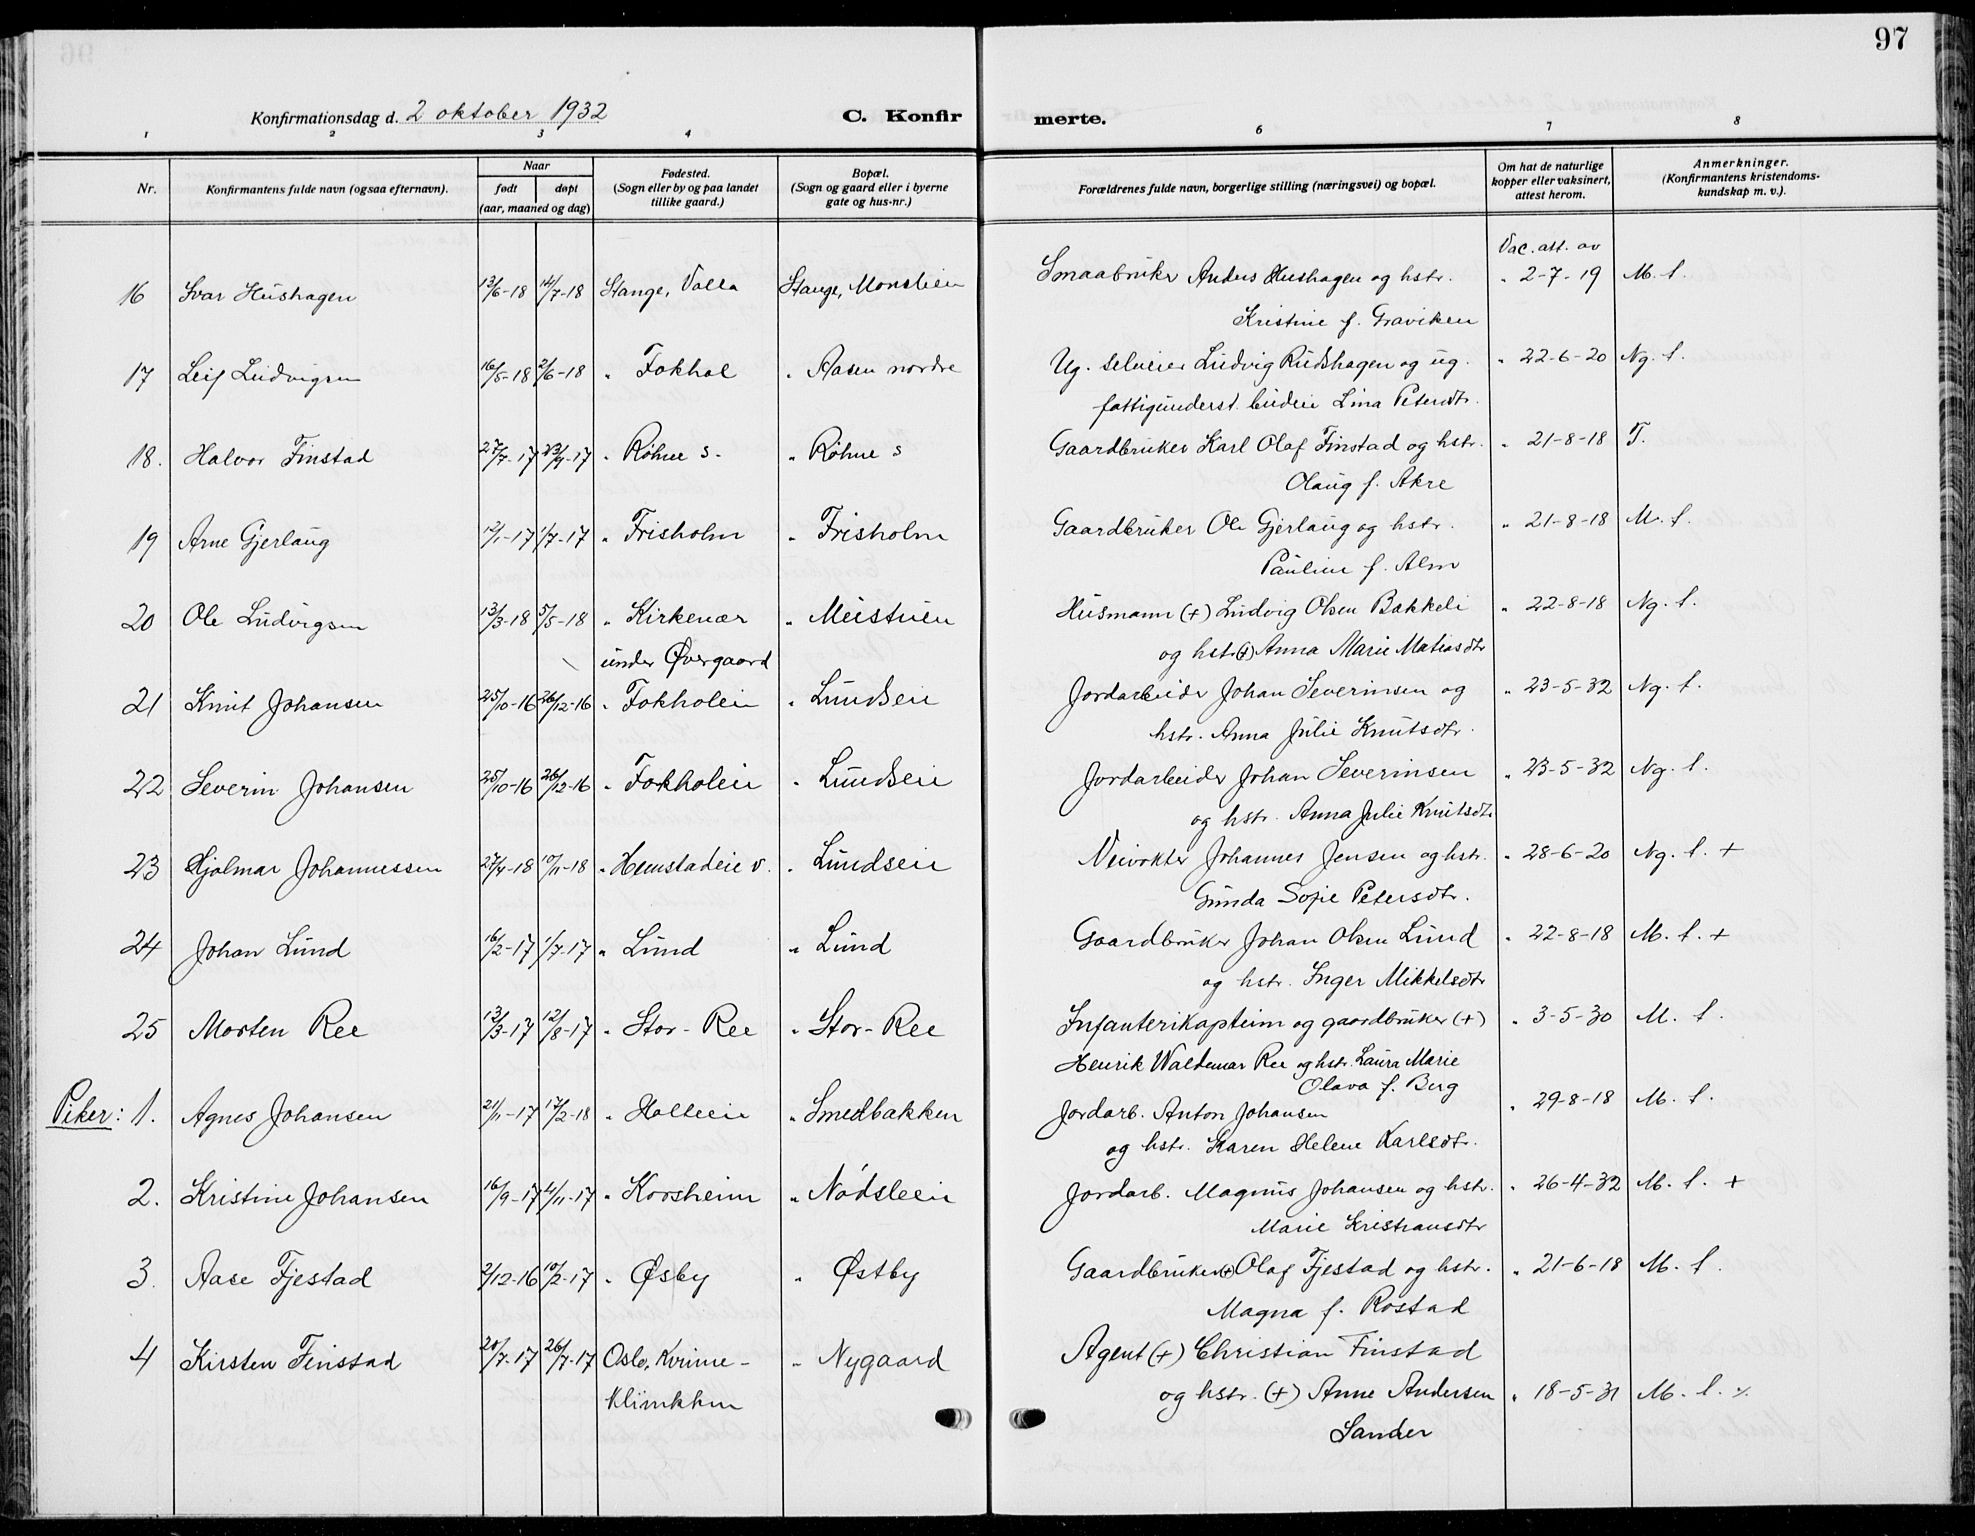 97
Konfirmationsdag d. 2 oktober 1932
C. Konfir
merte.
1 2 3 4 6 7 8
Nr.
Konfirmantens fulde navn (ogsaa efternavn).
Naar
født
døpt
(aar, maaned og dag)
Fødested.
(Sogn eller by og paa landet
tillike gaard.)
Bopæl.
(Sogn og gaard eller i byerne
gate og hus-nr.)
Forældrenes fulde navn, borgerlige stilling (næringsvei) og bopæl.
Om hat de naturlige
kopper eller vaksinert,
attest herom.
Anmerkninger.
(Konfirmantens kristendoms-
kundskap m. v.).
Vac. att. av
16 Ivar Hushagen 13/6-18 14/7-18 Stange, Valla Stange, Monslien Smaabruker Anders Hushagen og hstr. " 2-7-19 M. f.
Kristine f. Graviken
17 Leif Ludvigsen 16/5-18 2/6-18 " Fokhol " Aasen nordre Ug. selveier Ludvig Rudshagen og ug. " 22-6-20 Ng. f.
fattigunderst. budeie Lina Petersdtr.
18. Halvor Finstad 27/7-17 23/9-17 " Røhne s. " Røhne s Gaardbruker Karl Olaf Finstad og hstr. " 21-8-18 T.
Olaug f. Akre
19 Arne Gjerlaug 12/1-17 1/7-17 " Frisholm " Frisholm Gaardbruker Ole Gjerlaug og hstr. " 21-8-18 M. f.
Pauline f. Alm
20 Ole Ludvigsen 13/3-18 5/5-18 " Kirkenær " Meistuen Husmann (+) Ludvig Olsen Bakkeli " 22-8-18 Ng. f.
under Øvergaard og hstr (+) Anna Marie Matiasdtr
21 Knut Johansen 25/10-16 26/12-16 " Fokholeie " Lundseie Jordarbeider Johan Severinsen og " 23-5-32 Ng. f.
hstr. Anna Julie Knutsdtr.
22 Severin Johansen 25/10-16 26/12-16 " Fokholeie " Lundseie Jordarbeider Johan Severinsen " 23-5-32 Ng. f.
og hstr. Anna Julie Knutsdtr
23 Hjalmar Johannessen 27/4-18 10/11-18 " Hemstadeie v. " Lundseie Veivokter Johannes Jensen og hstr. " 28-6-20 Ng. f. +
Gunda Sofie Petersdtr.
24 Johan Lund 16/2-17 1/7-17 " Lund " Lund Gaardbruker Johan Olsen Lund " 22-8-18 M. f. +
og hstr. Inger Mikkelsdtr
25 Morten Ree 13/3-17 12/8-17 " Stor-Ree " Stor-Ree Infanterikaptein og gaardbruker (+) " 3-5-30 M. f.
Henrik Waldemar Ree og hstr. Laura Marie
Olava f. Berg
Piker: 1. Agnes Johansen 21/11-17 17/2-18 " Holteie " Smedbakken Jordarb. Anton Johansen " 29-8-18 M. f.
og hstr. Karen Helene Karlsdtr.
2. Kristine Johansen 16/9-17 4/11-17 " Korsheim " Nødsleeie Jordarb. Magnus Johansen og hstr. " 26-4-32 M. f. +
Marie Kristiansdtr
3. Aase Fjestad 2/12-16 10/2-17 " Øsby " Østby Gaardbruker (+) Olaf Fjestad og hstr. " 21-6-18 M. f.
Magna f. Rostad
4 Kirsten Finstad 20/7-17 26/7-17 Oslo, Kvinne- " Nygaard Agent (+) Christian Finstad
klinikken og hstr. (+) Anne Andersen " 18-5-31 M. f. %
Sander